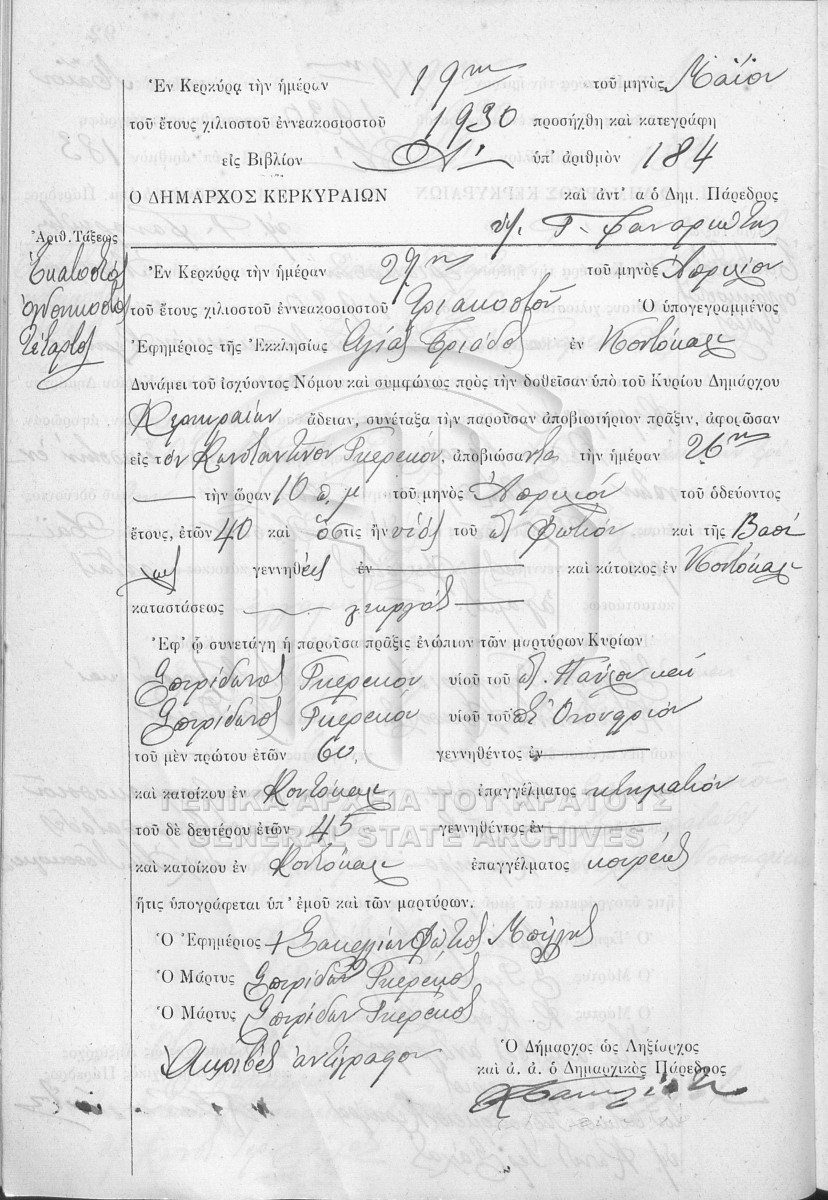 Ἐν Κερκύρᾳ τὴν ἡμέραν 19ην τοῦ μηνὸς Μαΐου
τοῦ ἔτους χιλιοστοῦ ἐννεακοσιοστοῦ 1930 προσήχθη καὶ κατεγράφη
εἰς Βιβλίον Α' ὑπ' ἀριθμὸν 184
Ὁ ΔΗΜΑΡΧΟΣ ΚΕΡΚΥΡΑΙΩΝ καὶ ἀντ' α ὁ Δημ. Πάρεδρος
Γ. Φαναριώτης
Ἀριθ. Τάξεως
Ἑκατοστὸς
ὀγδοηκοστὸς
τέταρτος
Ἐν Κερκύρᾳ τὴν ἡμέραν 27ην τοῦ μηνὸς Ἀπριλίου
τοῦ ἔτους χιλιοστοῦ ἐννεακοσιοστοῦ τριακοστοῦ Ὁ ὑπογεγραμμένος
Ἐφημέριος τῆς Ἐκκλησίας Ἁγίας Τριάδος ἐν Κοντόκαλι
Δυνάμει τοῦ ἰσχύοντος Νόμου καὶ συμφώνως πρὸς τὴν δοθεῖσαν ὑπὸ τοῦ Κυρίου Δημάρχου
Κερκυραίων ἄδειαν, συνέταξα τὴν παροῦσαν ἀποβιωτήριον πρᾶξιν, ἀφορῶσαν
εἰς τὸν Κωνσταντῖνον Γκερεκόν, ἀποβιώσαντα τὴν ἡμέραν 26ην
τὴν ὥραν 10 π. μ τοῦ μηνὸς Ἀπριλίου τοῦ ὁδεύοντος
ἔτους, ἐτῶν 40 καὶ ὅστις ἦν υἱὸς τοῦ π. Φωτίου καὶ τῆς Βασι
λως γεννηθεὶς ἐν καὶ κάτοικος ἐν Κοντόκαλι
καταστάσεως γεωργὸς
Ἐφ' ᾧ συνετάγη ἡ παροῦσα πρᾶξις ἐνώπιον τῶν μαρτύρων Κυρίων
Σπυρίδωνος Γκερεκοῦ υἱοῦ τοῦ π. Παύλου καὶ
Σπυρίδωνος Γκερεκοῦ υἱοῦ τοῦ
τοῦ μὲν πρώτου ἐτῶν 60, γεννηθέντος ἐν
καὶ κατοίκου ἐν Κοντόκαλι ἐπαγγέλματος κτηματίου
τοῦ δὲ δευτέρου ἐτῶν 45 γεννηθέντος ἐν
καὶ κατοίκου ἐν Κοντόκαλι ἐπαγγέλματος κουρέως
ἥτις ὑπογράφεται ὑπ' ἐμοῦ καὶ τῶν μαρτύρων.
Ὁ Ἐφημέριος + Σακελλίων Φώτιος
Ὁ Μάρτυς Σπυρίδων Γκερεκὸς
Ὁ Μάρτυς Σπυρίδων Γκερεκὸς
Ἀκριβὲς ἀντίγραφον
Ὁ Δήμαρχος ὡς Ληξίαρχος
καὶ ἀ. ἀ. ὁ Δημαρχικὸς Πάρεδρος
ΓΕΝΙΚΑ ΑΡΧΕΙΑ ΤΟΥ ΚΡΑΤΟΥΣ
GENERAL STATE ARCHIVES